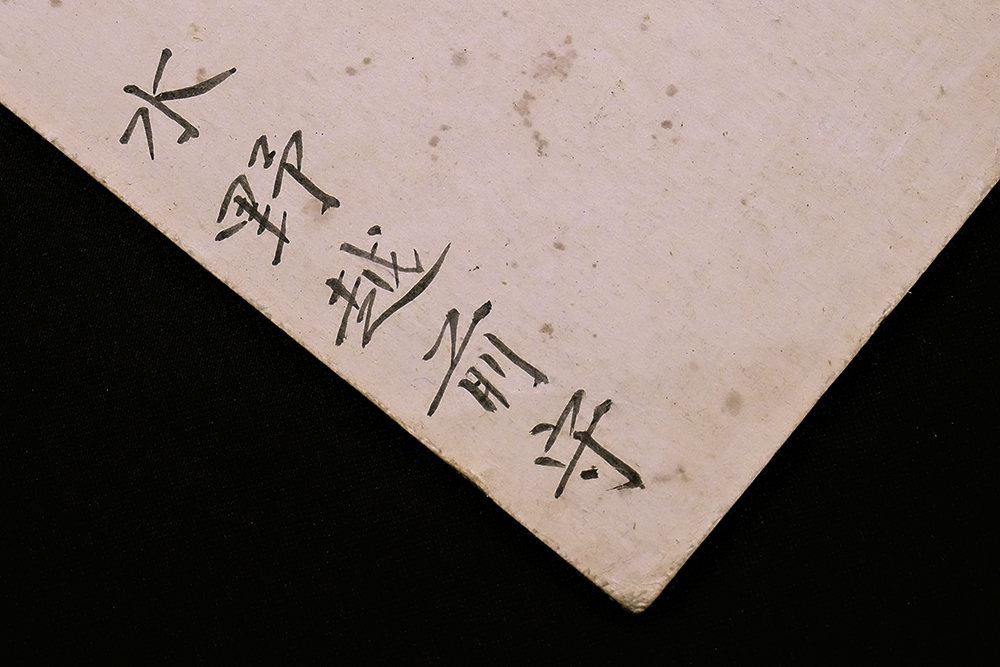 水野越前守